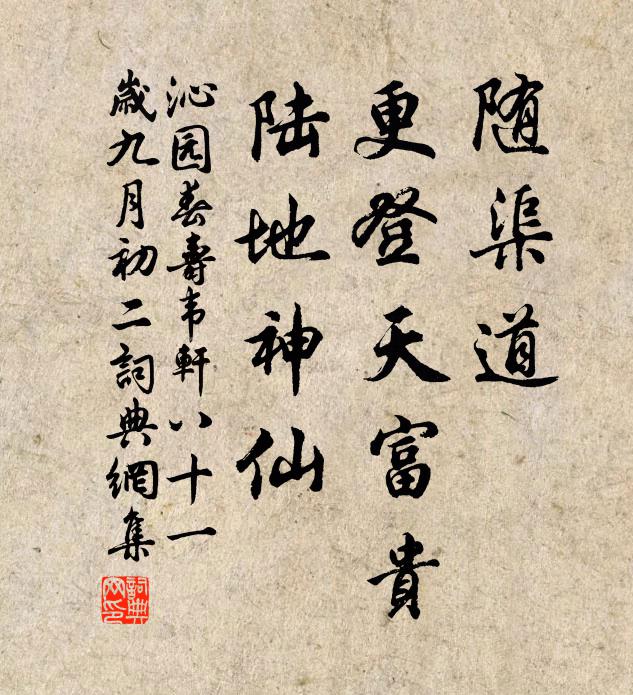 随渠道
更登天富貴
陆地神仙
沁园春壽韦軒八十一
歲九月初二詞典網集